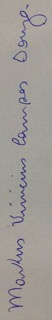 Markus Vinicius Campos Damg.